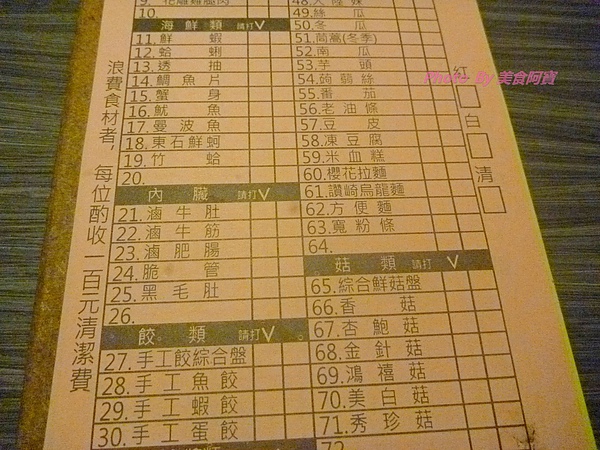 9. 花雕雞腿肉
10.
海鮮類 請打V
11. 鮮蝦
12. 蛤蜊
13. 透抽
14. 鯛魚片
15. 蟹身
16. 魷魚
17. 曼波魚
18. 東石鮮蚵
19. 竹蛤
20.
內臟 請打V
21. 滷牛肚
22. 滷牛筋
23. 滷肥腸
24. 脆管
25. 黑毛肚
26.
餃類 請打V
27. 手工餃綜合盤
28. 手工魚餃
29. 手工蝦餃
30. 手工蛋餃
49. 絲瓜
50. 冬瓜
51. 茼蒿(冬季)
52. 南瓜
53. 芋頭
54. 蒟蒻絲
55. 番茄
56. 老油條
57. 豆皮
58. 凍豆腐
59. 米血糕
60. 櫻花拉麵
61. 讚崎烏龍麵
62. 方便麵
63. 寬粉條
64.
菇類 請打V
65. 綜合鮮菇盤
66. 香菇
67. 杏鮑菇
68. 金針菇
69. 鴻禧菇
70. 美白菇
71. 秀珍菇
72.
紅
白
清
浪費食材者，每位酌收一百元清潔費
Photo By 美食阿寶